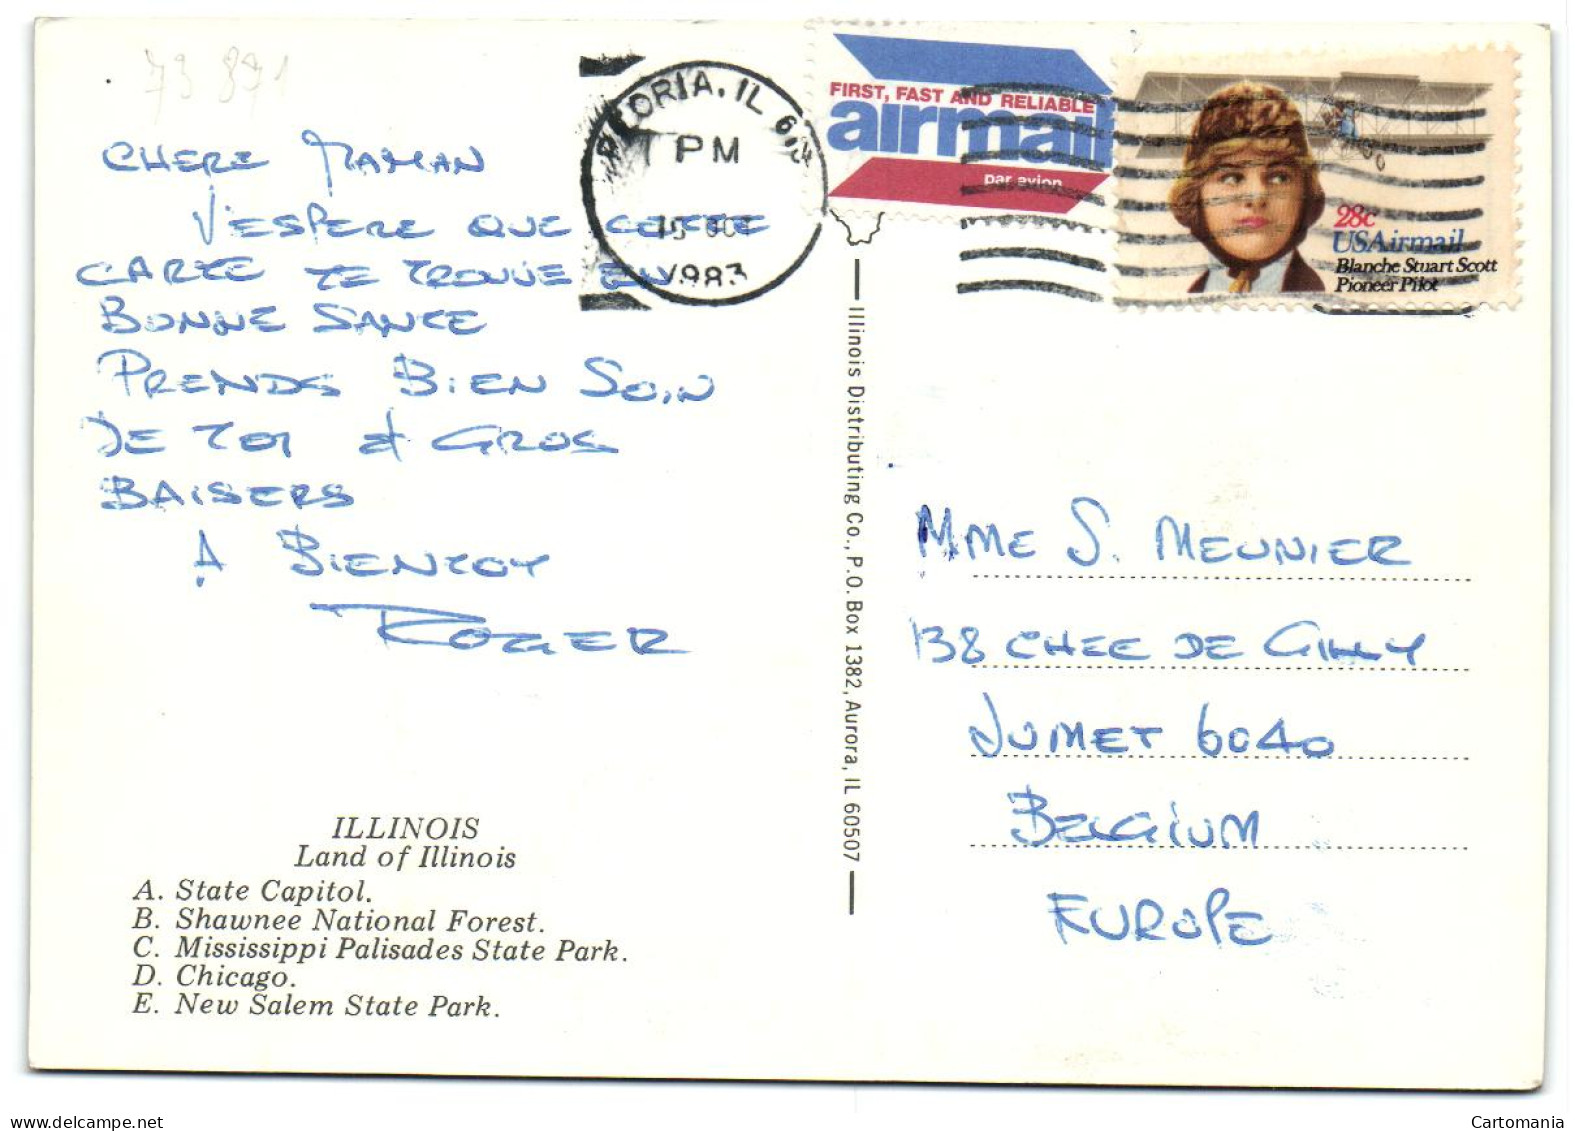 73 871
CHERE MAMAN
J'ESPERE QUE CETTE
CARTE TE TROUVE EN
BONNE SANTE
PRENDS BIEN SOIN
DE TOI et GROS
BAISERS
A BIENTOT
ROGER
ILLINOIS
Land of Illinois
A. State Capitol.
B. Shawnee National Forest.
C. Mississippi Palisades State Park.
D. Chicago.
E. New Salem State Park.
PEORIA, IL
PM
OCT
1983
FIRST, FAST AND RELIABLE
airmail
par avion
28c
USAirmail
Blanche Stuart Scott
Pioneer Pilot
Illinois Distributing Co., P.O. Box 1382, Aurora, IL 60507
MME S. MEUNIER
138 CHEE DE GILLY
JUMET 6040
BELGIUM
EUROPE
Cartomania